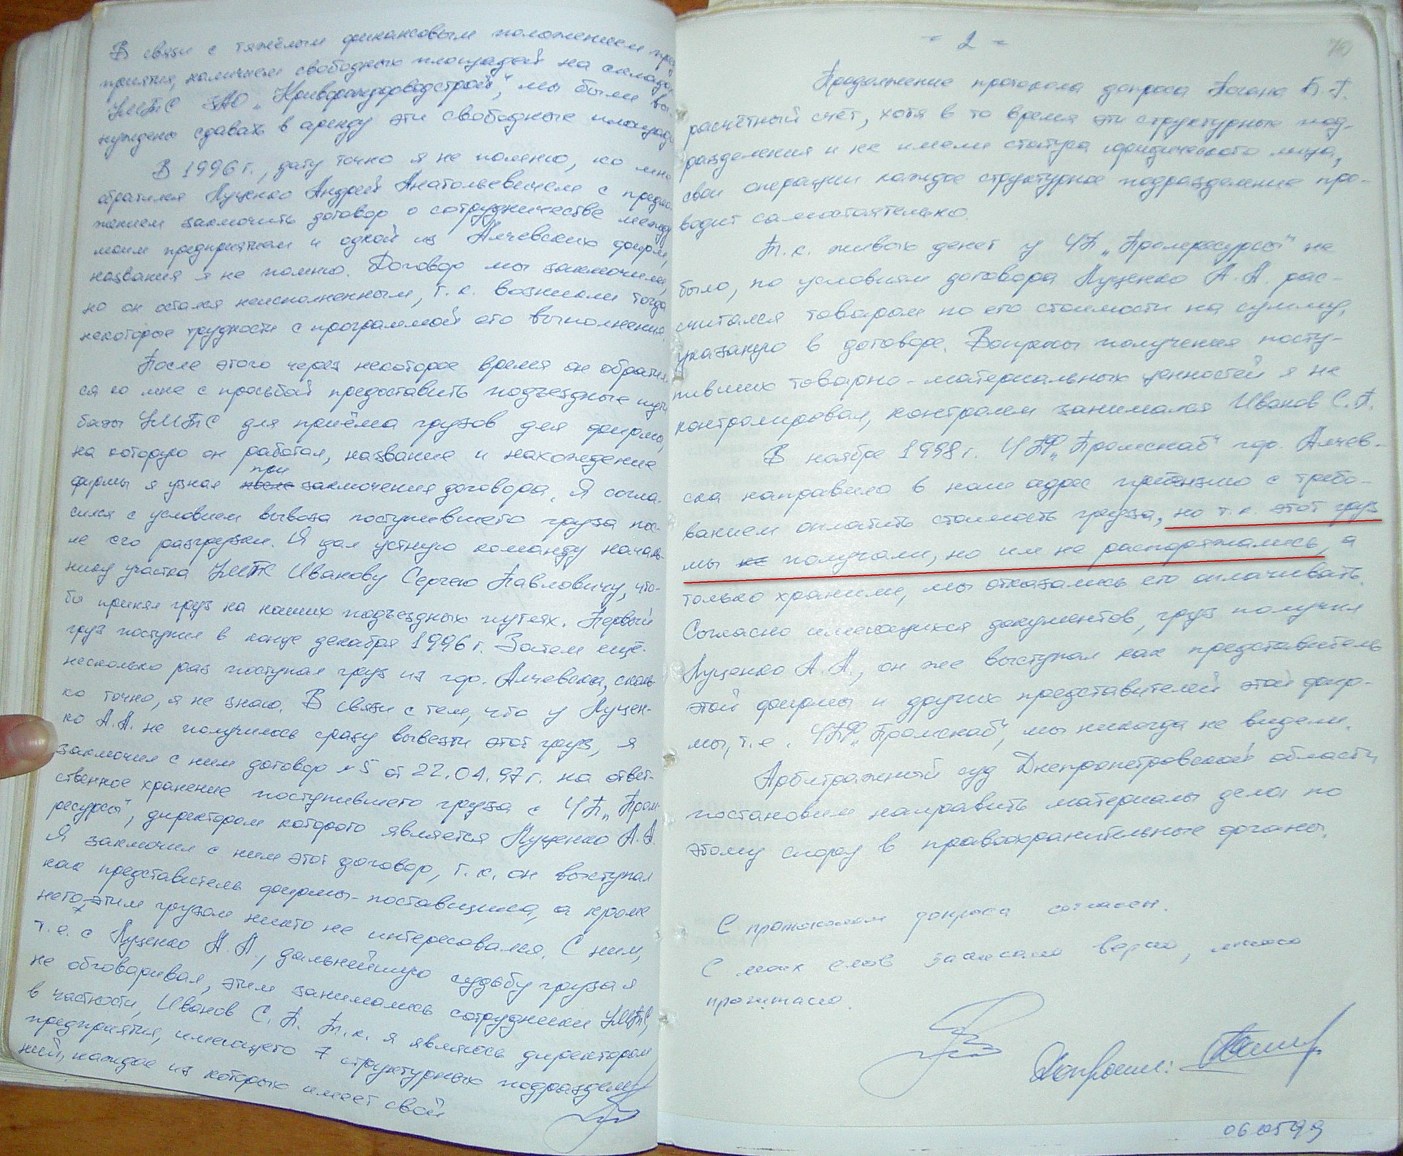 В связи с тяжёлым финансовым положением пред-
приятия, наличием свободных площадей на складах
УМТС ЗАО „Криворожагловодстрой", мы были вы-
нуждены сдавать в аренду эти свободные площади
В 1996 г., дату точно я не помню, ко мне
обратился Луценко Андрей Анатольевичем с предло-
жением заключить договор о сотрудничестве между
моим предприятием и одной из Алчевских фирм,
названия я не помню. Договор мы заключили,
но он остался неисполненным, т.к. возникли тогда
некоторые трудности с программой его выполнения.
После этого через некоторое время он обратил-
ся ко мне с просьбой предоставить подъездные пути
базы УМТС для приёма грузов для фирмы,
на которую он работал, название и нахождение
фирмы я узнал при заключения договора. Я согла-
сился с условием вывоза поступившего груза пос-
ле его разгрузки. Я дал устную команду началь-
нику участка УМТС Иванову Сергею Павловичу, что-
бы принял груз на наших подъездных путях. Первый
груз поступил в конце декабря 1996 г. Затем ещё
несколько раз поступал груз из гор. Алчевска, сколь-
ко точно, я не знаю. В связи с тем, что у Луцен-
ко А.А. не получилось сразу вывезти этот груз, я
заключил с ним договор №5 от 22.04.97 г. на ответ-
ственное хранение поступившего груза с ЧП „Пром-
ресурсы", директором которого является Луценко А.А
Я заключил с ним этот договор, т.к. он выступал
как представитель фирмы-поставщика, а кроме
него, этим грузом никто не интересовался. С ним,
т.е. с Луценко А.А., дальнейшую судьбу груза я
не обговаривал, этим занимались сотрудники УМТС,
в частности, Иванов С.П. Т.к. я являюсь директором
предприятия, имеющего 7 структурных подразделе-
ний, каждое из которых имеет свой
- 2 -
70
Продолжение протокола допроса Б.Г.
расчётный счёт, хотя в то время эти структурные под-
разделения и не имели статуса юридического лица,
свои операции каждое структурное подразделение про-
водит самостоятельно.
Т.к. живых денег у ЧП „Промресурсы" не
было, по условиям договора Луценко А.А. рас-
считался товаром по его стоимости на сумму,
указаную в договоре. Вопросы получения посту-
пивших товарно-материальных ценностей я не
контролировал, контролем занимался Иванов С.П.
В ноябре 1998 г. ЧПФ „Промснаб" гор. Алчев-
ска направило в наш адрес претензию с требо-
ванием оплатить стоимость груза, но т.к. этот груз
мы не получали, но им не распоряжались, а
только хранили, мы отказались его оплачивать.
Согласно имеющихся документов, груз получил
Луценко А.А., он же выступал как представитель
этой фирмы и других представителей этой фир-
мы, т.е. ЧПФ „Промснаб", мы никогда не видели.
Арбитражный суд Днепропетровской области
постановил направить материалы дела по
этому спору в правоохранительные органы.
С протоколом допроса согласен.
С моих слов записано верно, мною
прочитано.
Допросил:
06.05.99